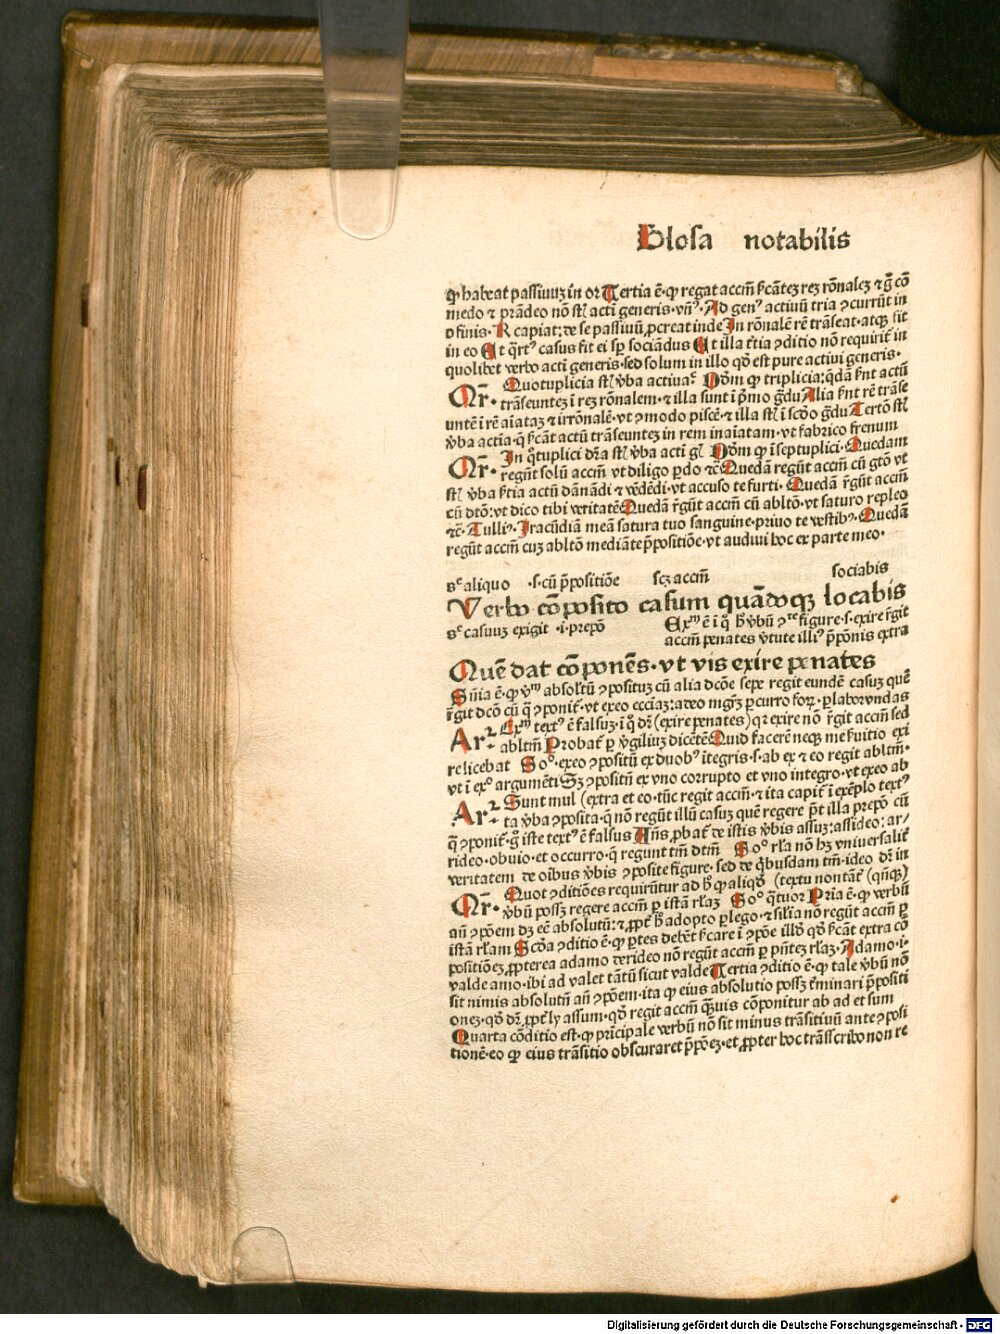 Glosa notabilis
ꝙ habeat passiuuꝫ in or Tertia ē·ꝙ regat accm̄ ſcāteꝫ reꝫ rōnaleꝫ ⁊ ḡ cō
medo ⁊ prādeo nō st̄ acti generis·vn̄ꝰ·Ad genꝰ actiuū tria ꝯcurrūt in
ofinis·R capiat:de se passiuū ꝓcreat inde In rōnalē rē trāseat·atqꝫ sit
in eo Et q̄rtꝰ casus fit ei sꝑ sociādus Et illa t̄tia ꝯditio nō requirit̄ in
quolibet verbo acti generis·sed solum in illo qd̄ est pure actiui generis·
Qr̄· Quotuplicia st̄ v̄ba actiua? Dōm ꝙ triplicia:q̄dā ſnt actū
trāseunteꝫ ī reꝫ rōnalem·⁊ illa sunt ī p̄mo ḡdu Alia ſnt rē trāse
untē ī rē aīataꝫ ⁊ irrōnalē·vt ꝯmodo piscē·⁊ illa st̄ ī scd̄o ḡdu Tertō st̄
v̄ba actia·q̄ ſcāt actū trāseunteꝫ in rem inaīatam·vt fabrico frenum
Qr̄· In q̄tuplici dr̄a st̄ v̄ba acti gl̄ Dōm ꝙ ī septuplici·Quedam
regūt solū accm̄ vt diligo ꝑdo ⁊c̄ Quedā regūt accm̄ cū gtō vt
st̄ v̄ba ſtia actū dānādi ⁊ vēdēdi·vt accuso te furti· Quedā r̄gūt accm̄
cū dtō:vt dico tibi veritatē Quedā r̄gūt accm̄ cū abltō·vt saturo repleo
⁊c̄· Tulliꝰ·Iracūdiā meā satura tuo sanguine·priuo te vestibꝰ·Quedā
regūt accm̄ cuꝫ abltō mediāte p̄positiōe·vt audiui hoc ex parte meo·
sᶜ aliquo ·s·cū p̄positiōe scꝫ accm̄ sociabis
Verbo cōposito casum quādoqꝫ locabis
sᶜ casuuꝫ exigit ·i·prepō Exᵐ ē ī q̄ h̄ v̄bū ꝯᵗᵉ figure·s·exire r̄git
accm̄ penates v̄tute illiꝰ p̄pōnis extra
Quē dat cōponēs·vt vis exire penates
Snīa ē·ꝙ v̄ᵐ absoltū ꝯpositūꝫ cū alia dcōe sepe regit eundē casuꝫ quē
r̄git dcō cū q̄ ꝯponit̄·vt exeo ecclīaꝫ:adeo mgrꝫ ꝑcurro forꝫ·ꝑlabor vndas
Ar̄· Exᵐ textꝰ ē falsuꝫ·ī q̄ dr̄ (exire penates) qꝛ exire nō r̄git accm̄ sed
abltm̄ Probat̄ ꝑ v̄giliuꝫ dicētē Quid facerē neqꝫ me ẜuitio exi
re licebat So°·exeo ꝯpositū ex duobꝰ ītegris·s·ab ex ⁊ eo regit abltm̄·
vt ī ex° argumēti Sꝫ ꝯpositū ex vno corrupto et vno integro·vt exeo ab
Ar̄· Sunt mul (extra et eo·tūc regit accm̄·⁊ ita capit̄ ī exēplo textꝰ
ta v̄ba ꝯposita·q̄ nō regūt illū casuꝫ quē regere p̄t illa prepō cū
q̄ ꝯponit̄·ḡ iste textꝰ ē falsus Ans̄ ꝓbat̄ de istis v̄bis assuꝫ:assideo:ar/
rideo·obuio·et occurro·q̄ regunt tm̄ dtm̄ So° rl̄a nō hꝫ vniuersalit̄
veritatem de oībus v̄bis ꝯposite figure·sed de q̄busdam tm̄·ideo dr̄ in
Qr̄· Quot ꝯditiōes requirūtur ad h̄ ꝙ aliqd̄ (textu nontāt̄ (qn̄qꝫ)
v̄bū possꝫ regere accm̄ ꝑ istā rl̄aꝫ So° q̄tuor Pria ē·ꝙ verbū
an̄ ꝯpōem dꝫ eē absolutū:⁊ ꝓpt̄ h̄ adopto ꝑlego·⁊ sil̄ia nō regūt accm̄ ꝑ
istā rl̄am Scd̄a ꝯditio ē·ꝙ ꝑtes debēt ſcare ī ꝯpōe illd̄ qd̄ ſcāt extra cō
positiōeꝫ ꝓpterea adamo derideo nō regūt accm̄ ꝑ pn̄teꝫ rl̄aꝫ·Adamo·i·
valde amo·ibi ad valet tātū sicut valde Tertia ꝯditio ē·ꝙ tale v̄bū nō
sit nimis absolutū an̄ ꝯpōem·ita ꝙ eius absolutio possꝫ t̄minari p̄positi
oneꝫ·qd̄ dr̄ ꝓpt̄ ly assum·qd̄ regit accm̄ q̄uis cōponitur ab ad et sum
Quarta cōditio est·ꝙ prīcipale verbū nō sit minus trāsitiuū ante ꝯposi
tionē·eo ꝙ eius trāsitio obscuraret p̄pōeꝫ·et ꝓpter hoc trāsscribo non re
Digitalisierung gefördert durch die Deutsche Forschungsgemeinschaft - DFG